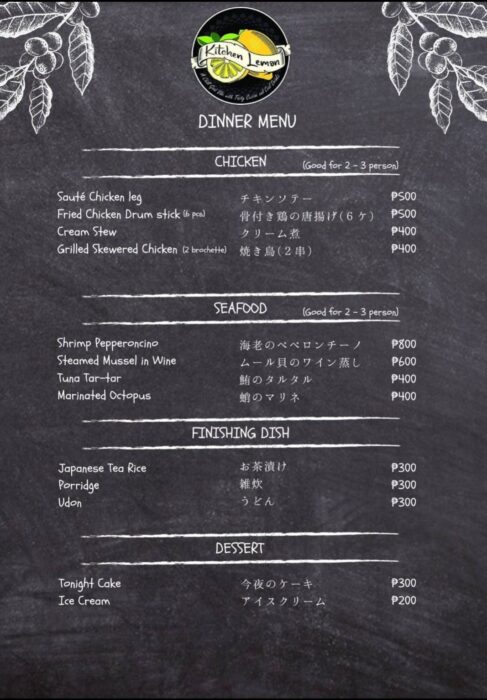 Kitchen Lemon
DINNER MENU
CHICKEN (Good for 2 - 3 person)
Sauté Chicken leg チキンソテー ₱500
Fried Chicken Drum stick (6 pcs) 骨付き鶏の唐揚げ(6ケ) ₱500
Cream Stew クリーム煮 ₱400
Grilled Skewered Chicken (2 brochette) 焼き鳥(2串) ₱400
SEAFOOD (Good for 2 - 3 person)
Shrimp Pepperoncino 海老のペペロンチーノ ₱800
Steamed Mussel in Wine ムール貝のワイン蒸し ₱600
Tuna Tar-tar 鮪のタルタル ₱400
Marinated Octopus 蛸のマリネ ₱400
FINISHING DISH
Japanese Tea Rice お茶漬け ₱300
Porridge 雑炊 ₱300
Udon うどん ₱300
DESSERT
Tonight Cake 今夜のケーキ ₱300
Ice Cream アイスクリーム ₱200